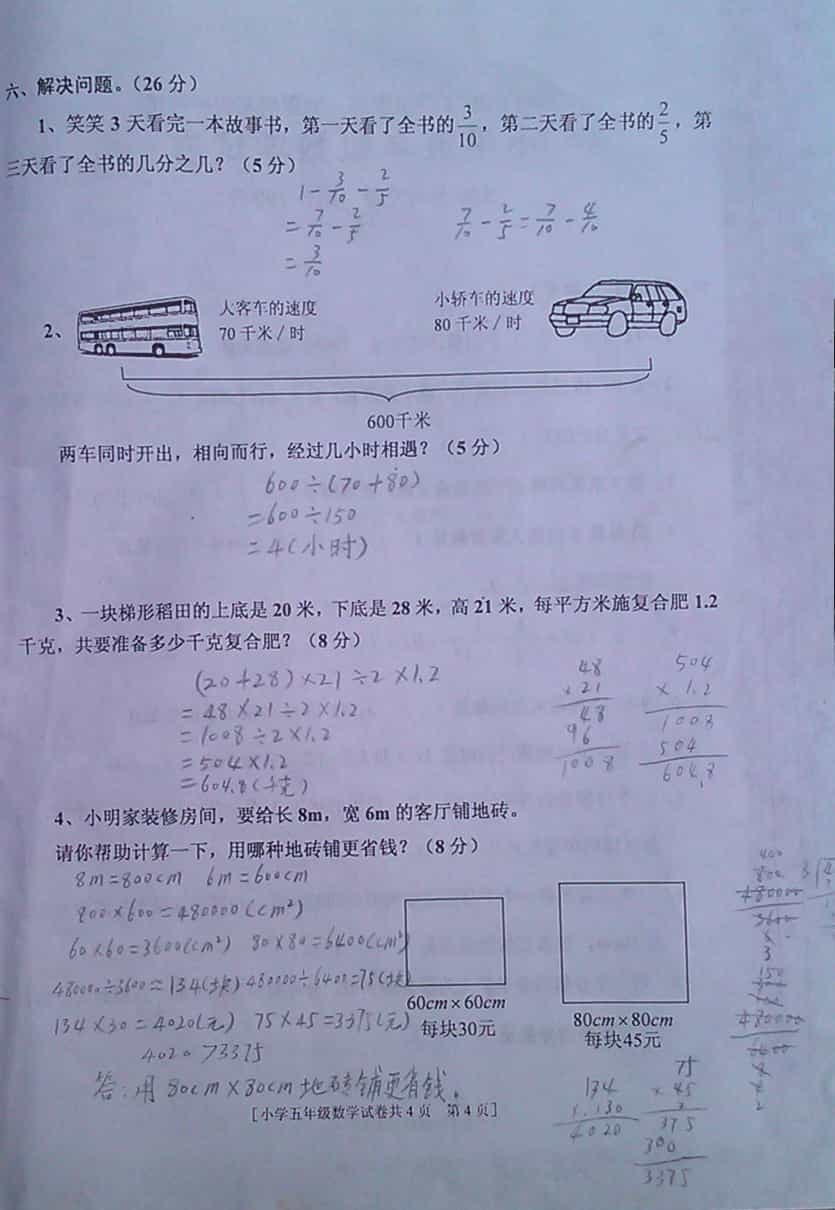 六、解决问题。(26 分)
1、笑笑 3 天看完一本故事书，第一天看了全书的 3/10，第二天看了全书的 2/5，第
三天看了全书的几分之几？(5 分)
1 - 3/10 - 2/5
= 7/10 - 2/5
7/10 - 2/5 = 7/10 - 4/10
= 3/10
2、
大客车的速度
70 千米／时
小轿车的速度
80 千米／时
600千米
两车同时开出，相向而行，经过几小时相遇？(5 分)
600÷(70+80)
=600÷150
=4(小时)
3、一块梯形稻田的上底是 20 米，下底是 28 米，高 21 米，每平方米施复合肥 1.2
千克，共要准备多少千克复合肥？(8 分)
(20+28)×21÷2×1.2
=48×21÷2×1.2
=1008÷2×1.2
=504×1.2
=604.8(千克)
48
×21
48
96
1008
504
×1.2
1008
504
604.8
4、小明家装修房间，要给长 8m，宽 6m 的客厅铺地砖。
请你帮助计算一下，用哪种地砖铺更省钱？(8 分)
8m=800cm 6m=600cm
800×600=480000(cm²)
60×60=3600(cm²) 80×80=6400(cm²)
480000÷3600≈134(块) 480000÷6400=75(块)
134×30=4020(元) 75×45=3375(元)
4020>3375
答:用80cm×80cm地砖铺更省钱。
60cm×60cm
每块30元
80cm×80cm
每块45元
134
×.130
4020
75
×45
375
300
3375
400
800
480000
3600
3
150
480000
6400
2
[小学五年级数学试卷共 4 页 第 4 页]